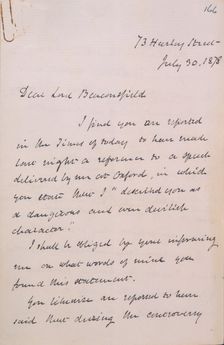 166
73 Harley Street
July 30. 1878
Dear Lord Beaconsfield
I find you are reported
in the Times of today to have made
last night a reference to a speech
delivered by me at Oxford, in which
you state that I "described you as
a dangerous and even devilish
character."
I shall be obliged by your informing
me on what words of mine you
found this statement.
You likewise are reported to have
said that during the controversy